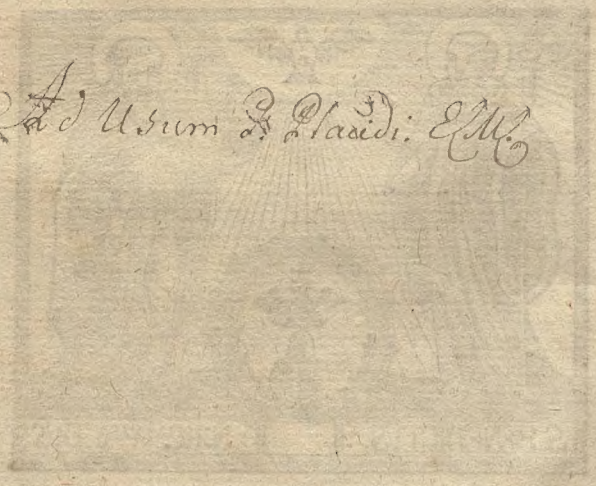 Ad Usum P. Placidi: